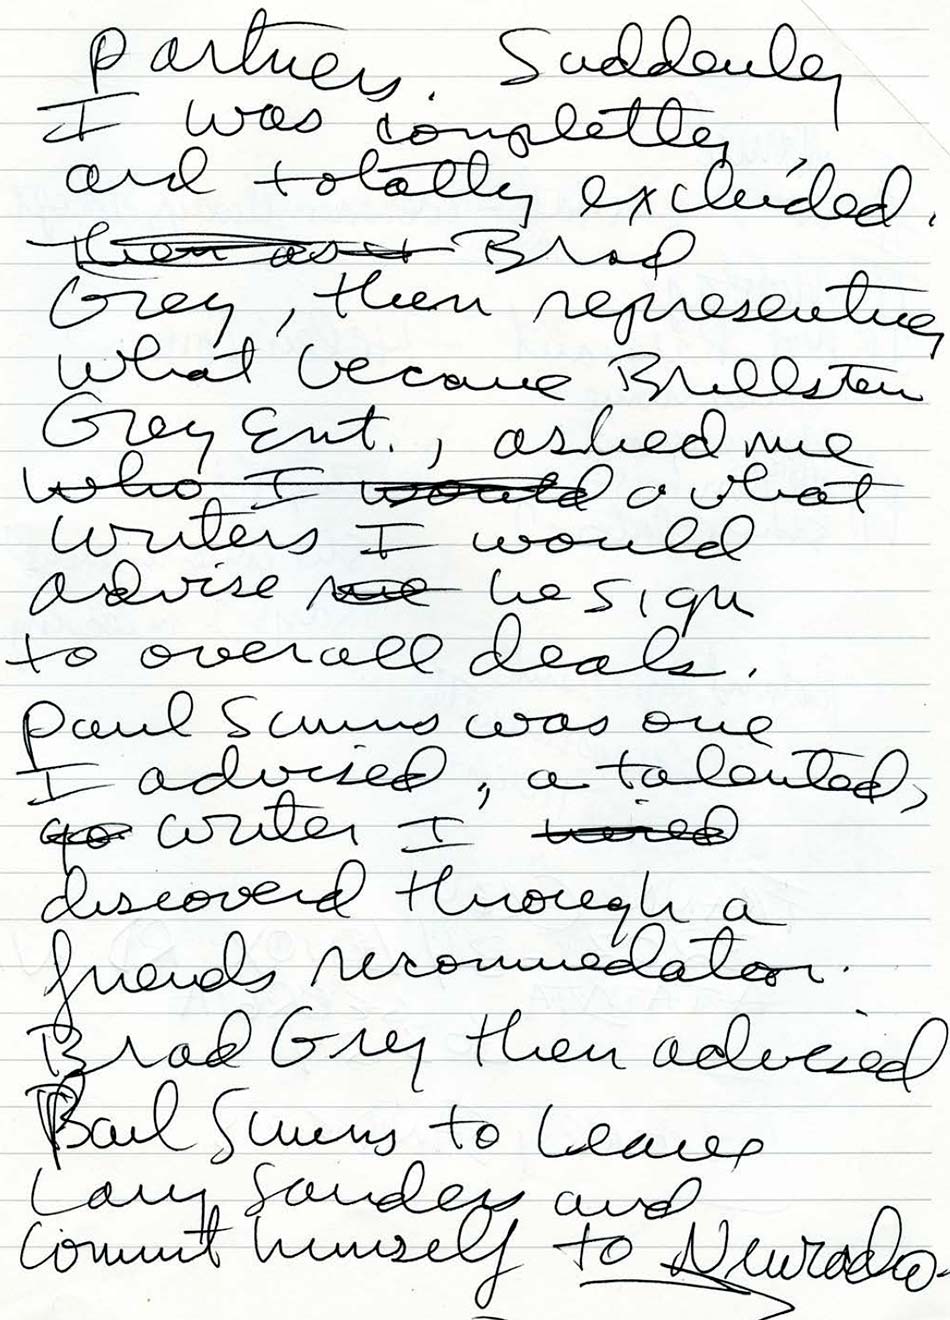 partners. Suddenly
I was completely
and totally excluded.
then as Brad
Grey, then representing
what became Brillsten
Grey Ent., asked me
who I would a what
writers I would
advise me he sign
to overall deals.
Paul Simms was one
I advised, a talented,
writer I
discoverd through a
friends recommedation.
Brad Grey then advised
Paul Simms to leave
Larry Sanders and
commit himself to Newradio